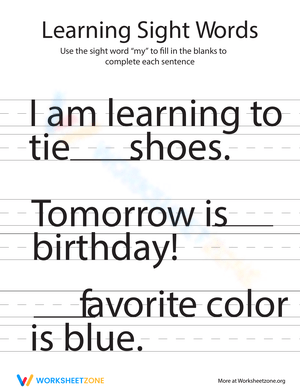 Learning Sight Words
Use the sight word “my” to fill in the blanks to
complete each sentence
I am learning to
tie____shoes.
Tomorrow is____
birthday!
____favorite color
is blue.
WORKSHEETZONE
WORKSHEETZONE
More at Worksheetzone.org